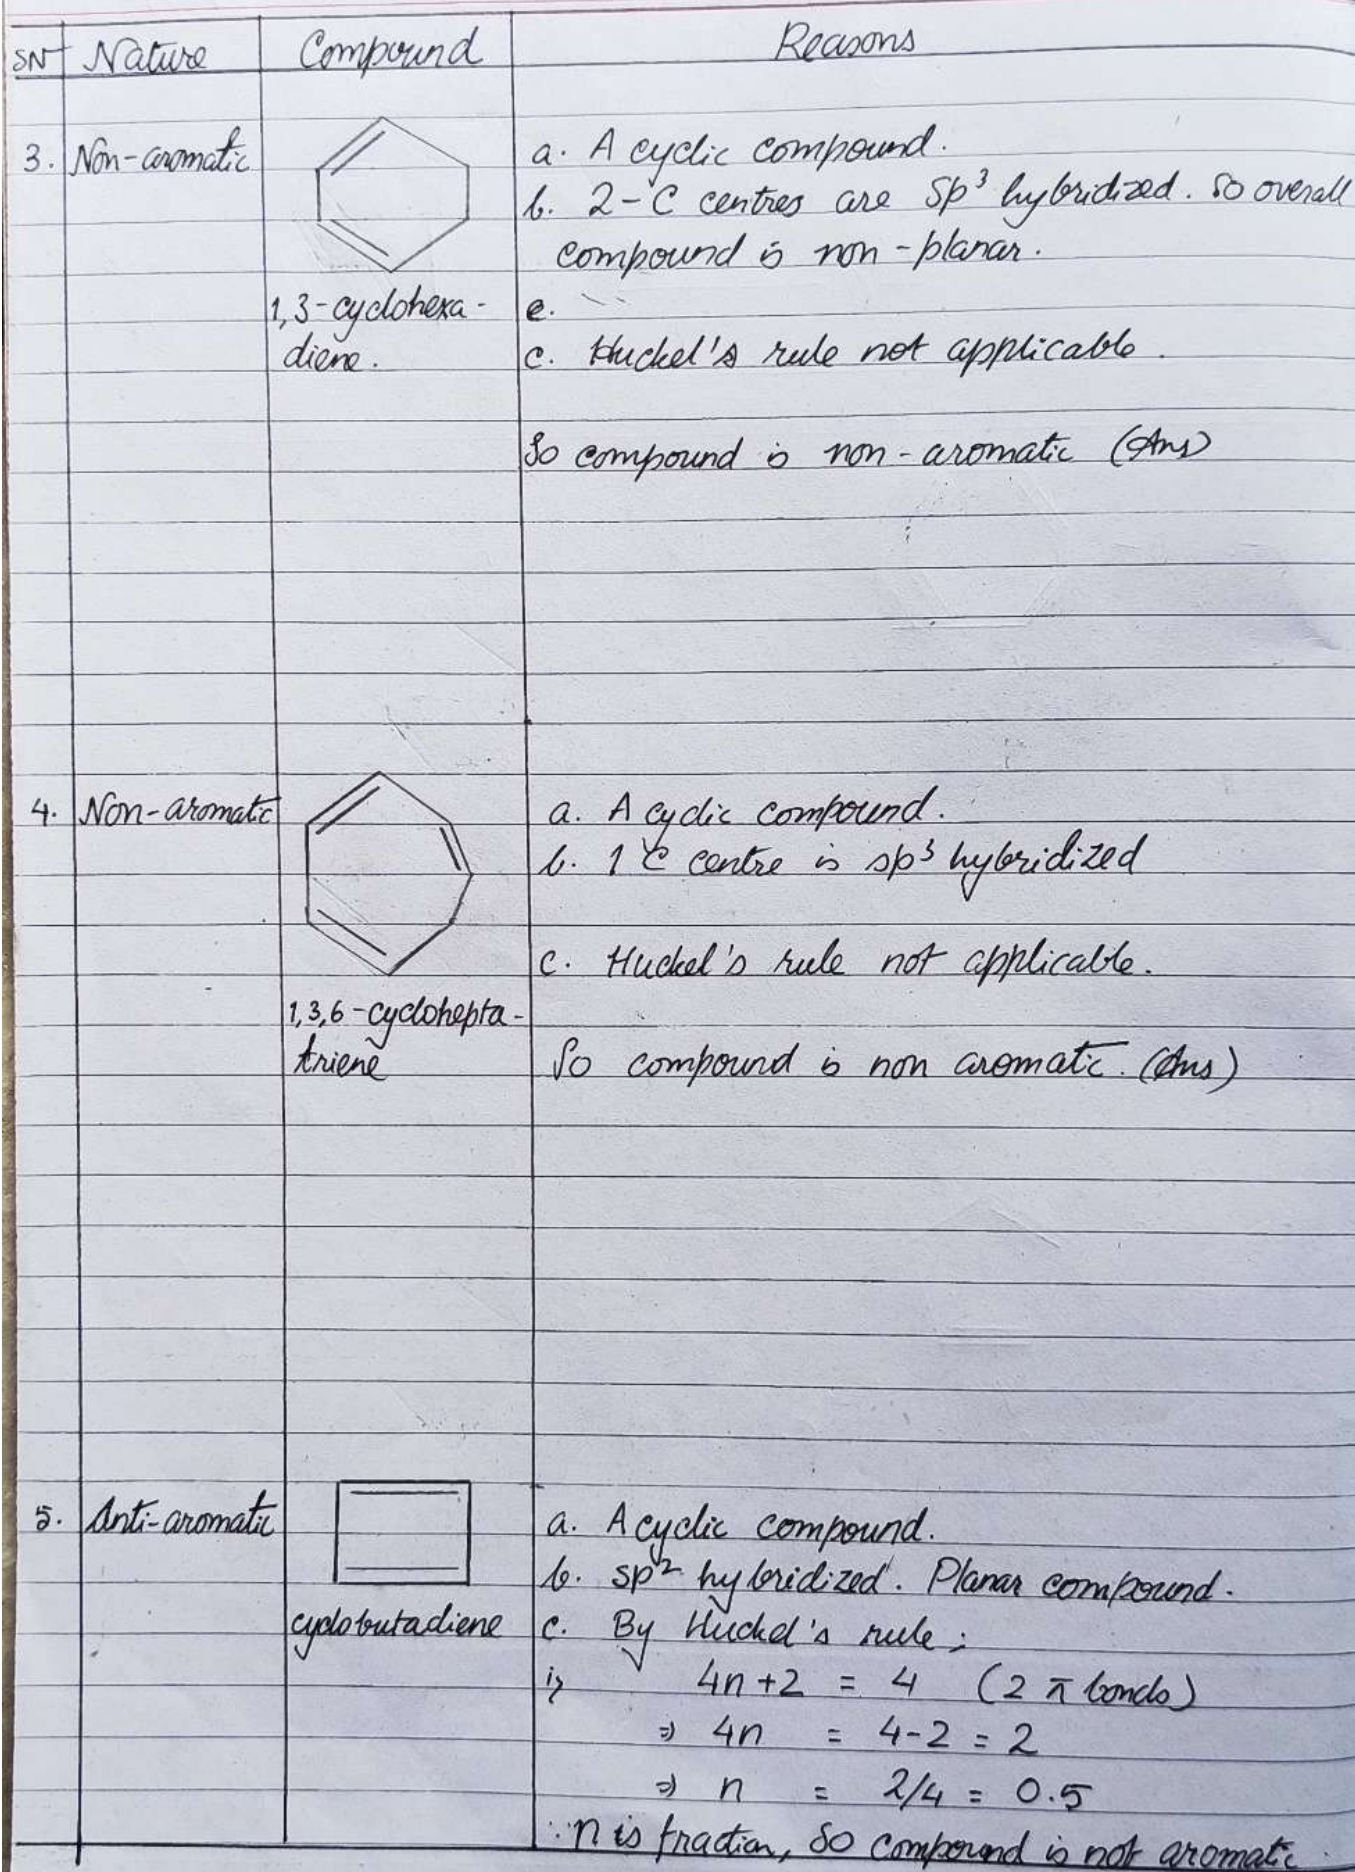 SN Nature Compound Reasons
3. Non-aromatic
1,3-cyclohexa-
diene.
a. A cyclic compound.
b. 2-C centres are sp³ hybridized. So overall
compound is non-planar.
e.
c. Huckel's rule not applicable.
So compound is non-aromatic (Ans)
4. Non-aromatic
1,3,6-cyclohepta-
triene
a. A cyclic compound.
b. 1 C centre is sp³ hybridized
c. Huckel's rule not applicable.
So compound is non aromatic. (Ans)
5. Anti-aromatic
cyclobutadiene
a. A cyclic compound.
b. sp² hybridized. Planar compound.
c. By Huckel's rule;
i> 4n+2 = 4 (2 π bonds)
⇒ 4n = 4-2 = 2
⇒ n = 2/4 = 0.5
∵ n is fraction, so compound is not aromatic.